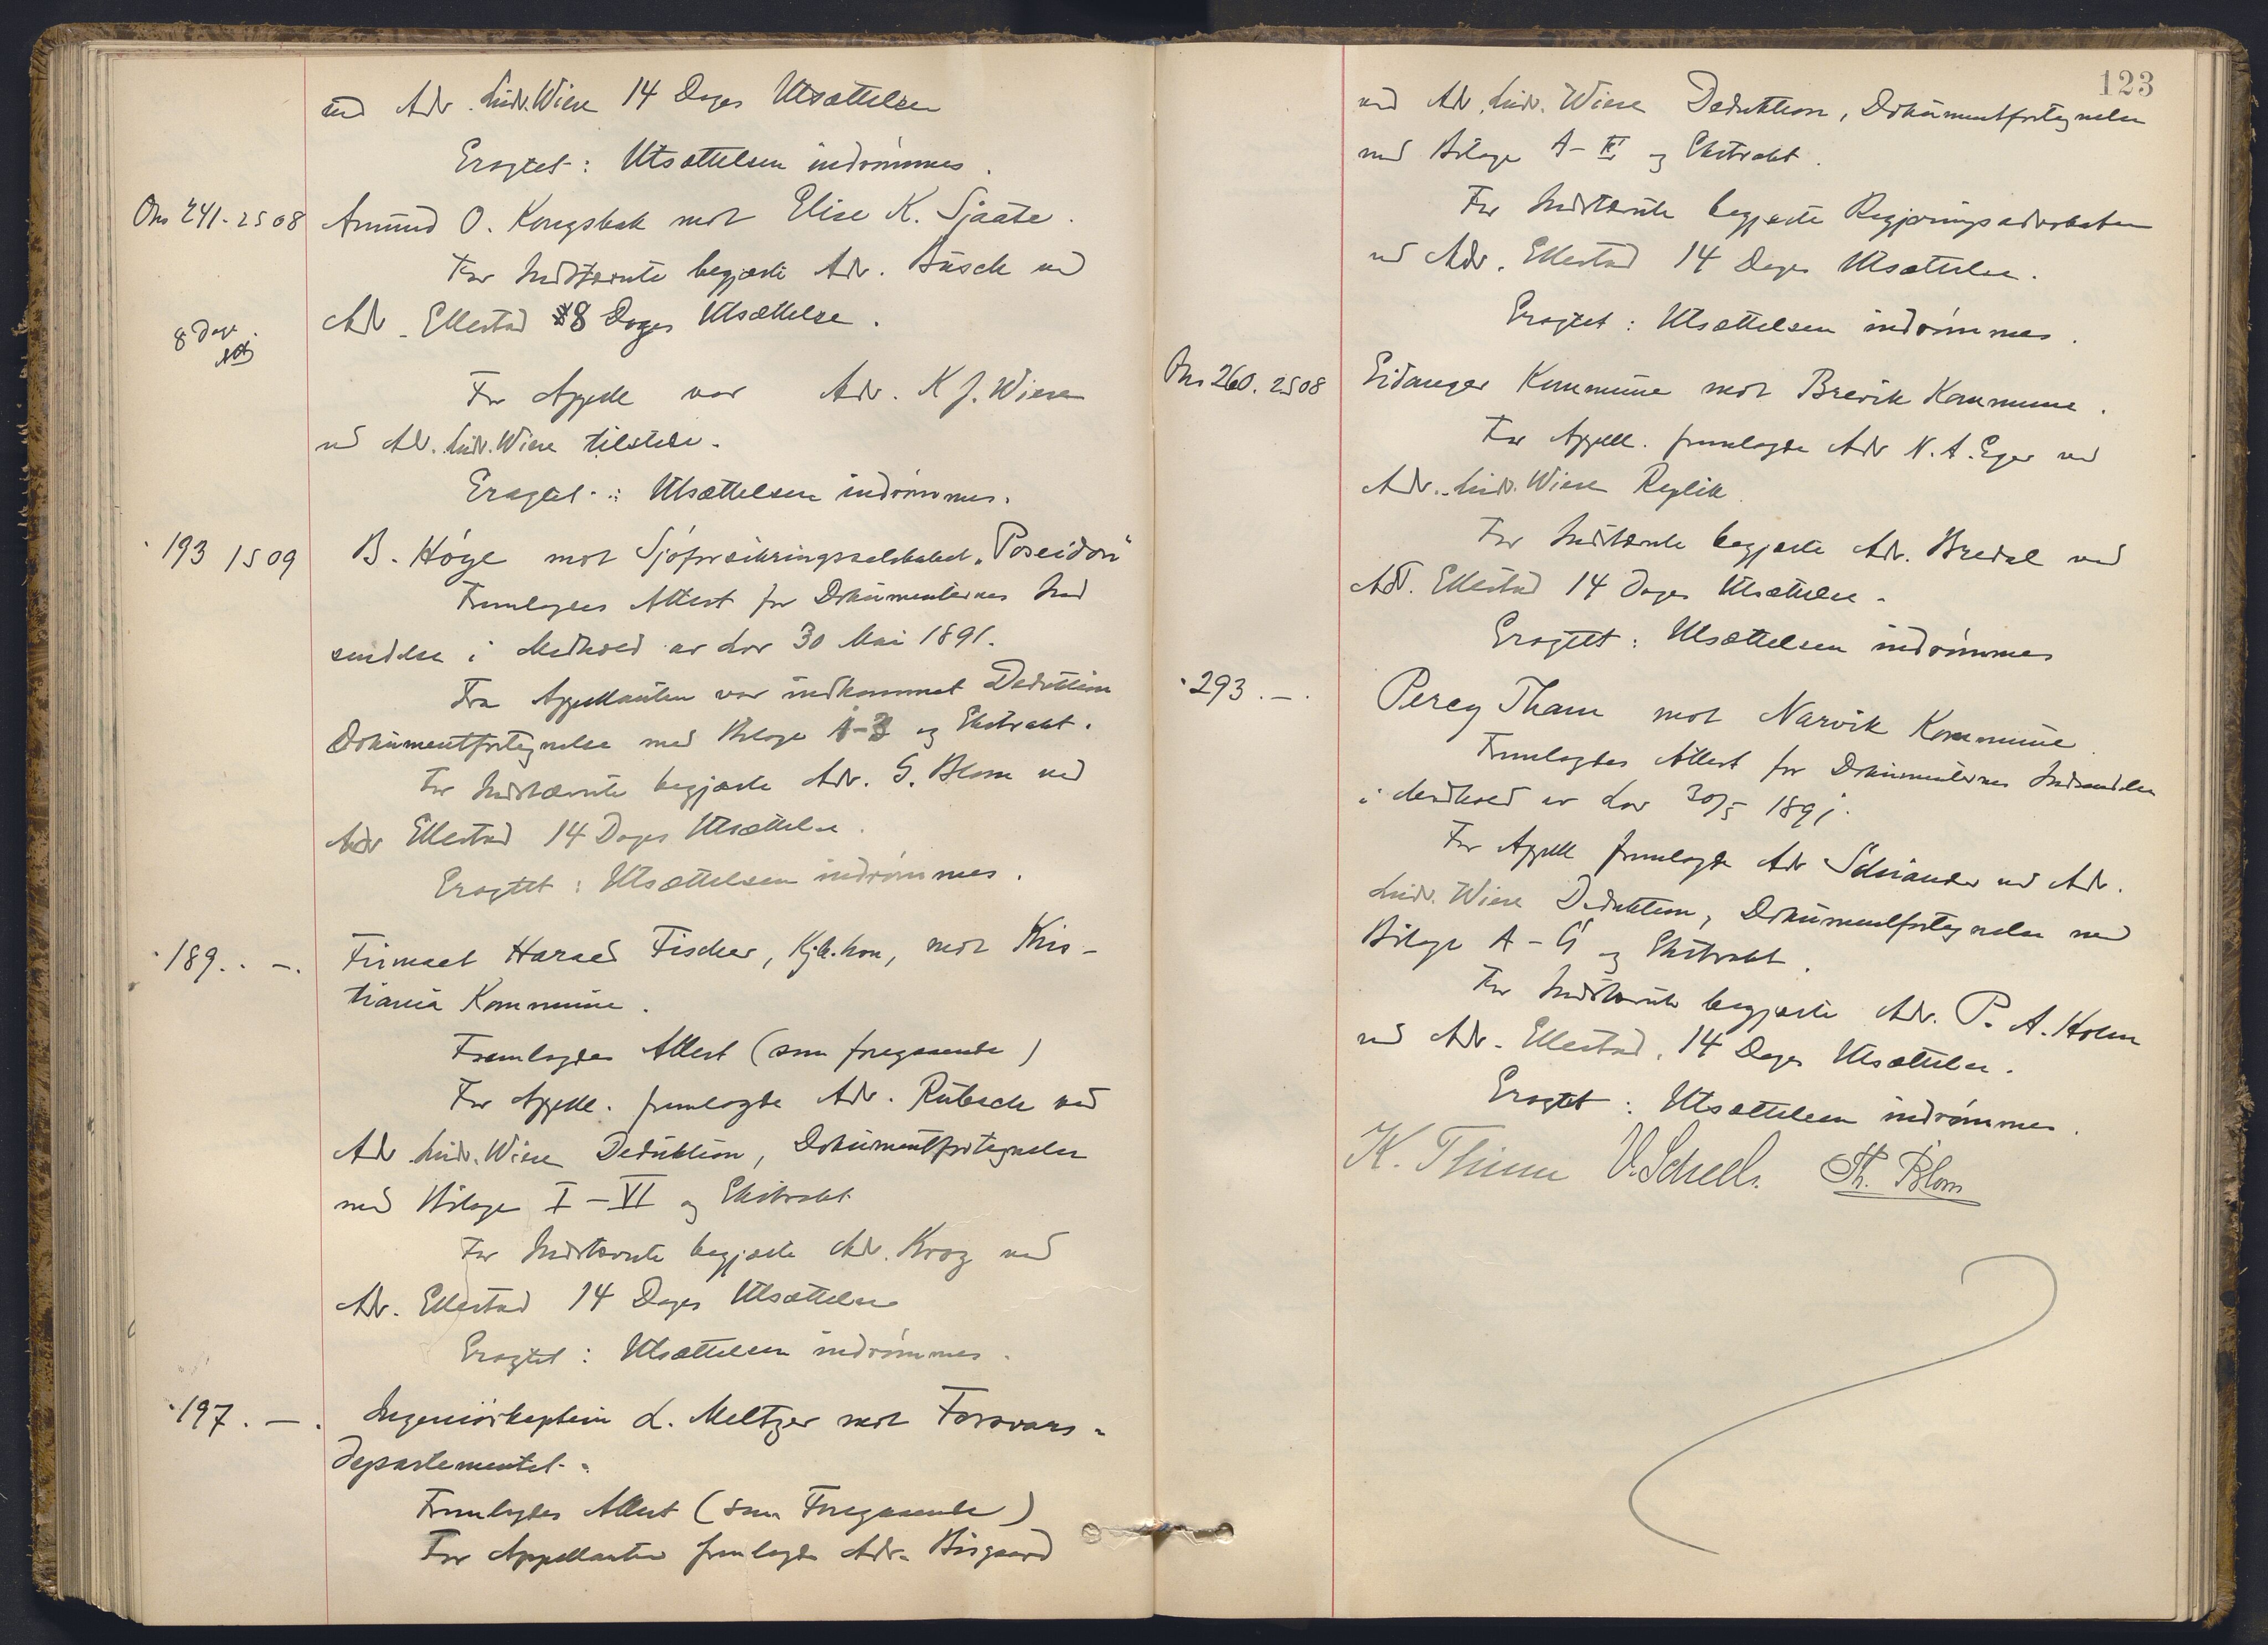 ved Adv. Ludv. Wiese 14 Dages Utsættelse
Eragtet: Utsættelsen indrømmes.
Ons 241 - 2 S 08
Amund O. Kongsbak mot Elise K. Sjaate.
For Indstævnte begjærte Adv. Busch ved
Adv. Ellestad 8 Dages Utsættelse.
8 Dage.
For Appell. var Adv. K J. Wiese
ved Adv. Ludv. Wiese tilstede.
Eragtet: Utsættelsen indrømmes.
193 1 S 09
B. Høge mot Sjøforsikringsselskabet „Poseidon"
Fremlagdes Attest for Dokumenternes Ind
sendelse i Medhold av Lov 30 Mai 1891.
Fra Appellanten var indkommet Deduktion
Dokumentfortegnelse med Bilage 1-3 og Ekstrakt.
For Indstævnte begjærte Adv. G. Blom ved
Adv Ellestad 14 Dages Utsættelse.
Eragtet: Utsættelsen indrømmes.
189. - .
Firmaet Harald Fischer, Kjb.hvn, mot Kris-
tiania Kommune.
Fremlagdes Attest (som foregaaende)
For Appell. fremlagde Adv. Rubach ved
Adv. Ludv. Wiese Deduktion, Dokumentfortegnelse
med Bilage I - VI og Ekstrakt
For Indstævnte begjærte Adv. Krag ved
Adv. Ellestad 14 Dages Utsættelse
Eragtet: Utsættelsen indrømmes.
197. - .
Ingeniørkaptein L. Meltzer mot Forsvars-
departementet.
Fremlagdes Attest (som Foregaaende)
For Appellanten fremlagde Adv. Bisgaard
123
ved Adv. Ludv. Wiese Deduktion, Dokumentfortegnelse
med Bilage A- og Ekstrakt.
For Indstævnte begjærte Regjeringsadvokaten
ved Adv. Ellestad 14 Dages Utsættelse.
Eragtet: Utsættelsen indrømmes.
Ons 260. 2 S 08
Eidanger Kommune mot Brevik Kommune.
For Appell. fremlagde Adv N. A. Eger ved
Adv. Ludv. Wiese Replik.
For Indstævnte begjærte Adv. Bredal ved
Adv. Ellestad 14 Dages Utsættelse.
Eragtet: Utsættelsen indrømmes
293. - .
Percy Tham mot Narvik Kommune.
Fremlagdes Attest for Dokumenternes Indsendelse
i Medhold av Lov 30/5 1891.
For Appell fremlagde Adv ved Adv.
Ludv. Wiese Deduktion, Dokumentfortegnelse med
Bilage A - G og Ekstrakt.
For Indstævnte begjærte Adv. P. A. Holm
ved Adv. Ellestad, 14 Dages Utsættelse.
Eragtet: Utsættelsen indrømmes.
K. Thinn V. Scheel. Th. Blom